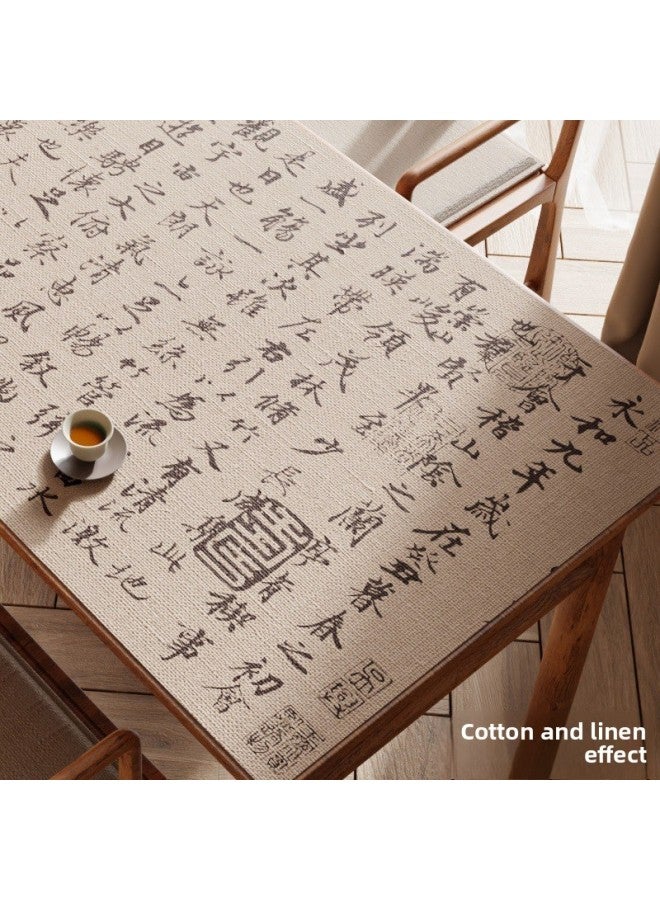 永和九年歲在癸丑暮春之初會
于會稽山陰之蘭亭脩禊事
也羣賢畢至少長咸集此地
有崇山峻領茂林脩竹又有清流激
湍暎帶左右引以為流觴曲水
列坐其次雖無絲竹管弦
盛一觴一詠亦足以暢敘幽
是日也天朗氣清惠風
觀宇宙之大俯察品
遊目騁懷足
樂也夫
Cotton and linen
effect